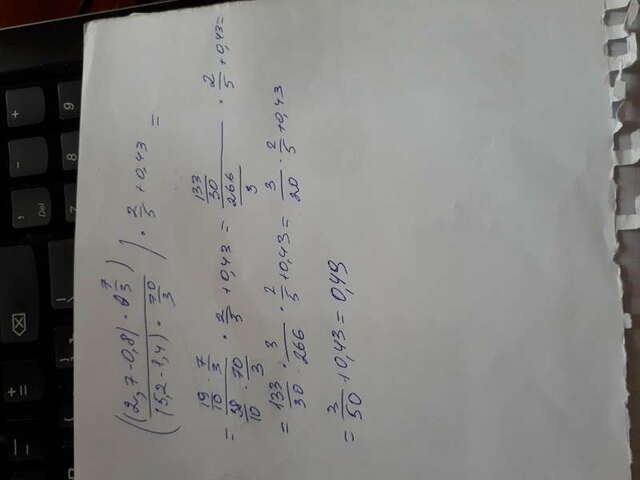 Del
7 8 9
((2,7-0,8) · 2 7/3) / ((5,2-1,4) · 70/3) · 2/5 + 0,43 =
= (19/10 · 7/3) / (38/10 · 70/3) · 2/5 + 0,43 = (133/30) / (266/3) · 2/5 + 0,43 =
= 133/30 · 3/266 · 2/5 + 0,43 = 3/20 · 2/5 + 0,43
= 3/50 + 0,43 = 0,49